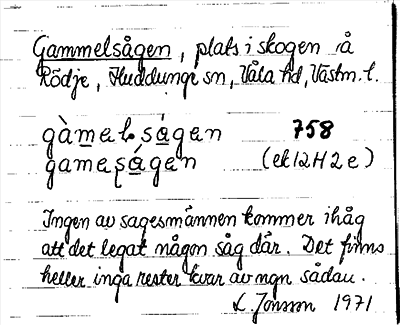 Gammelsågen, plats i skogen å
Rödje, Huddunge sn, Våla hd, Västm. l.
gàmelsågen 758
gamesågen (ek 12 H 2 e)
Ingen av sagesmännen kommer ihåg
att det legat någon såg där. Det finns
heller inga rester kvar av ngn sådan.
L. Jonson 1971